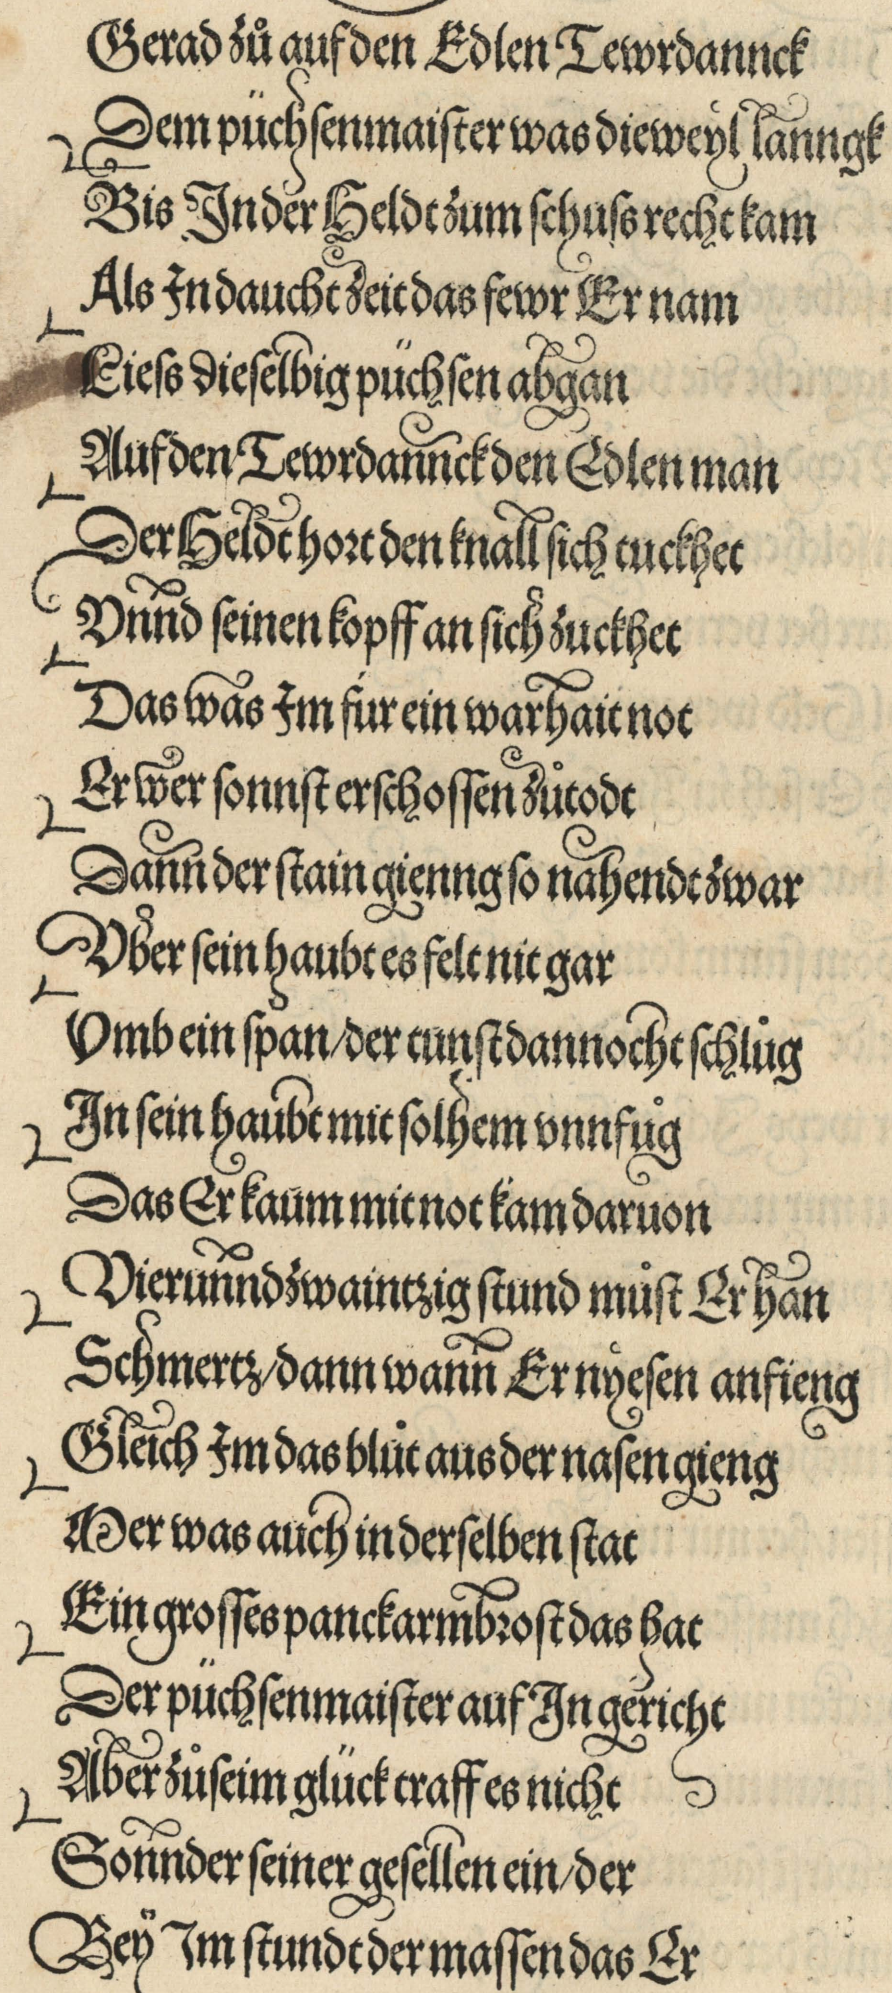 Gerad zů auf den Edlen Tewrdannck
Dem püchsenmaister was dieweyl lanngk
Bis In der Heldt zum schuss recht kam
Als In daucht zeit das fewr Er nam
Liess dieselbig püchsen abgan
Auf den Tewrdannck den Edlen man
Der Heldt hort den knall sich tuckhet
Vnnd seinen kopff an sich zuckhet
Das was Im für ein warhait not
Er wer sonnst erschossen zůtodt
Dann der stain gienng so nahendt zwar
Vber sein haubt es felt nit gar
Vmb ein span/der tunst dannocht schlůg
In sein haubt mit solhem vnnfůg
Das Er kaum mit not kam daruon
Vierunndzwaintzig stund můst Er han
Schmertz/dann wann Er nyesen anfieng
Gleich Im das blůt aus der nasen gieng
Mer was auch in derselben stat
Ein grosses panckarmbrost das hat
Der püchsenmaister auf In gericht
Aber zů seim glück traff es nicht
Sonnder seiner gesellen ein/der
Bey Im stundt der massen das Er